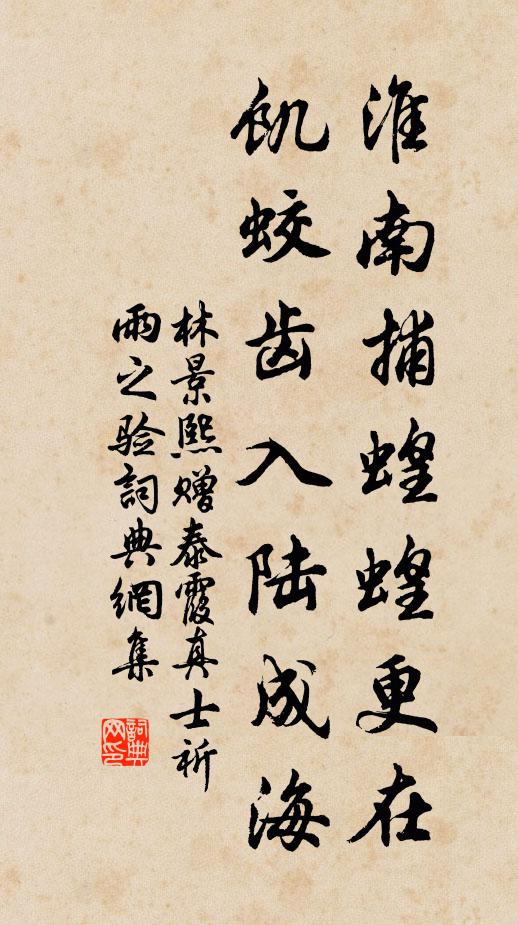 淮南捕蝗蝗更在
飢蛟齿入陆成海
林景熙赠泰霞真士祈
雨之验詞典網集
詞典网印